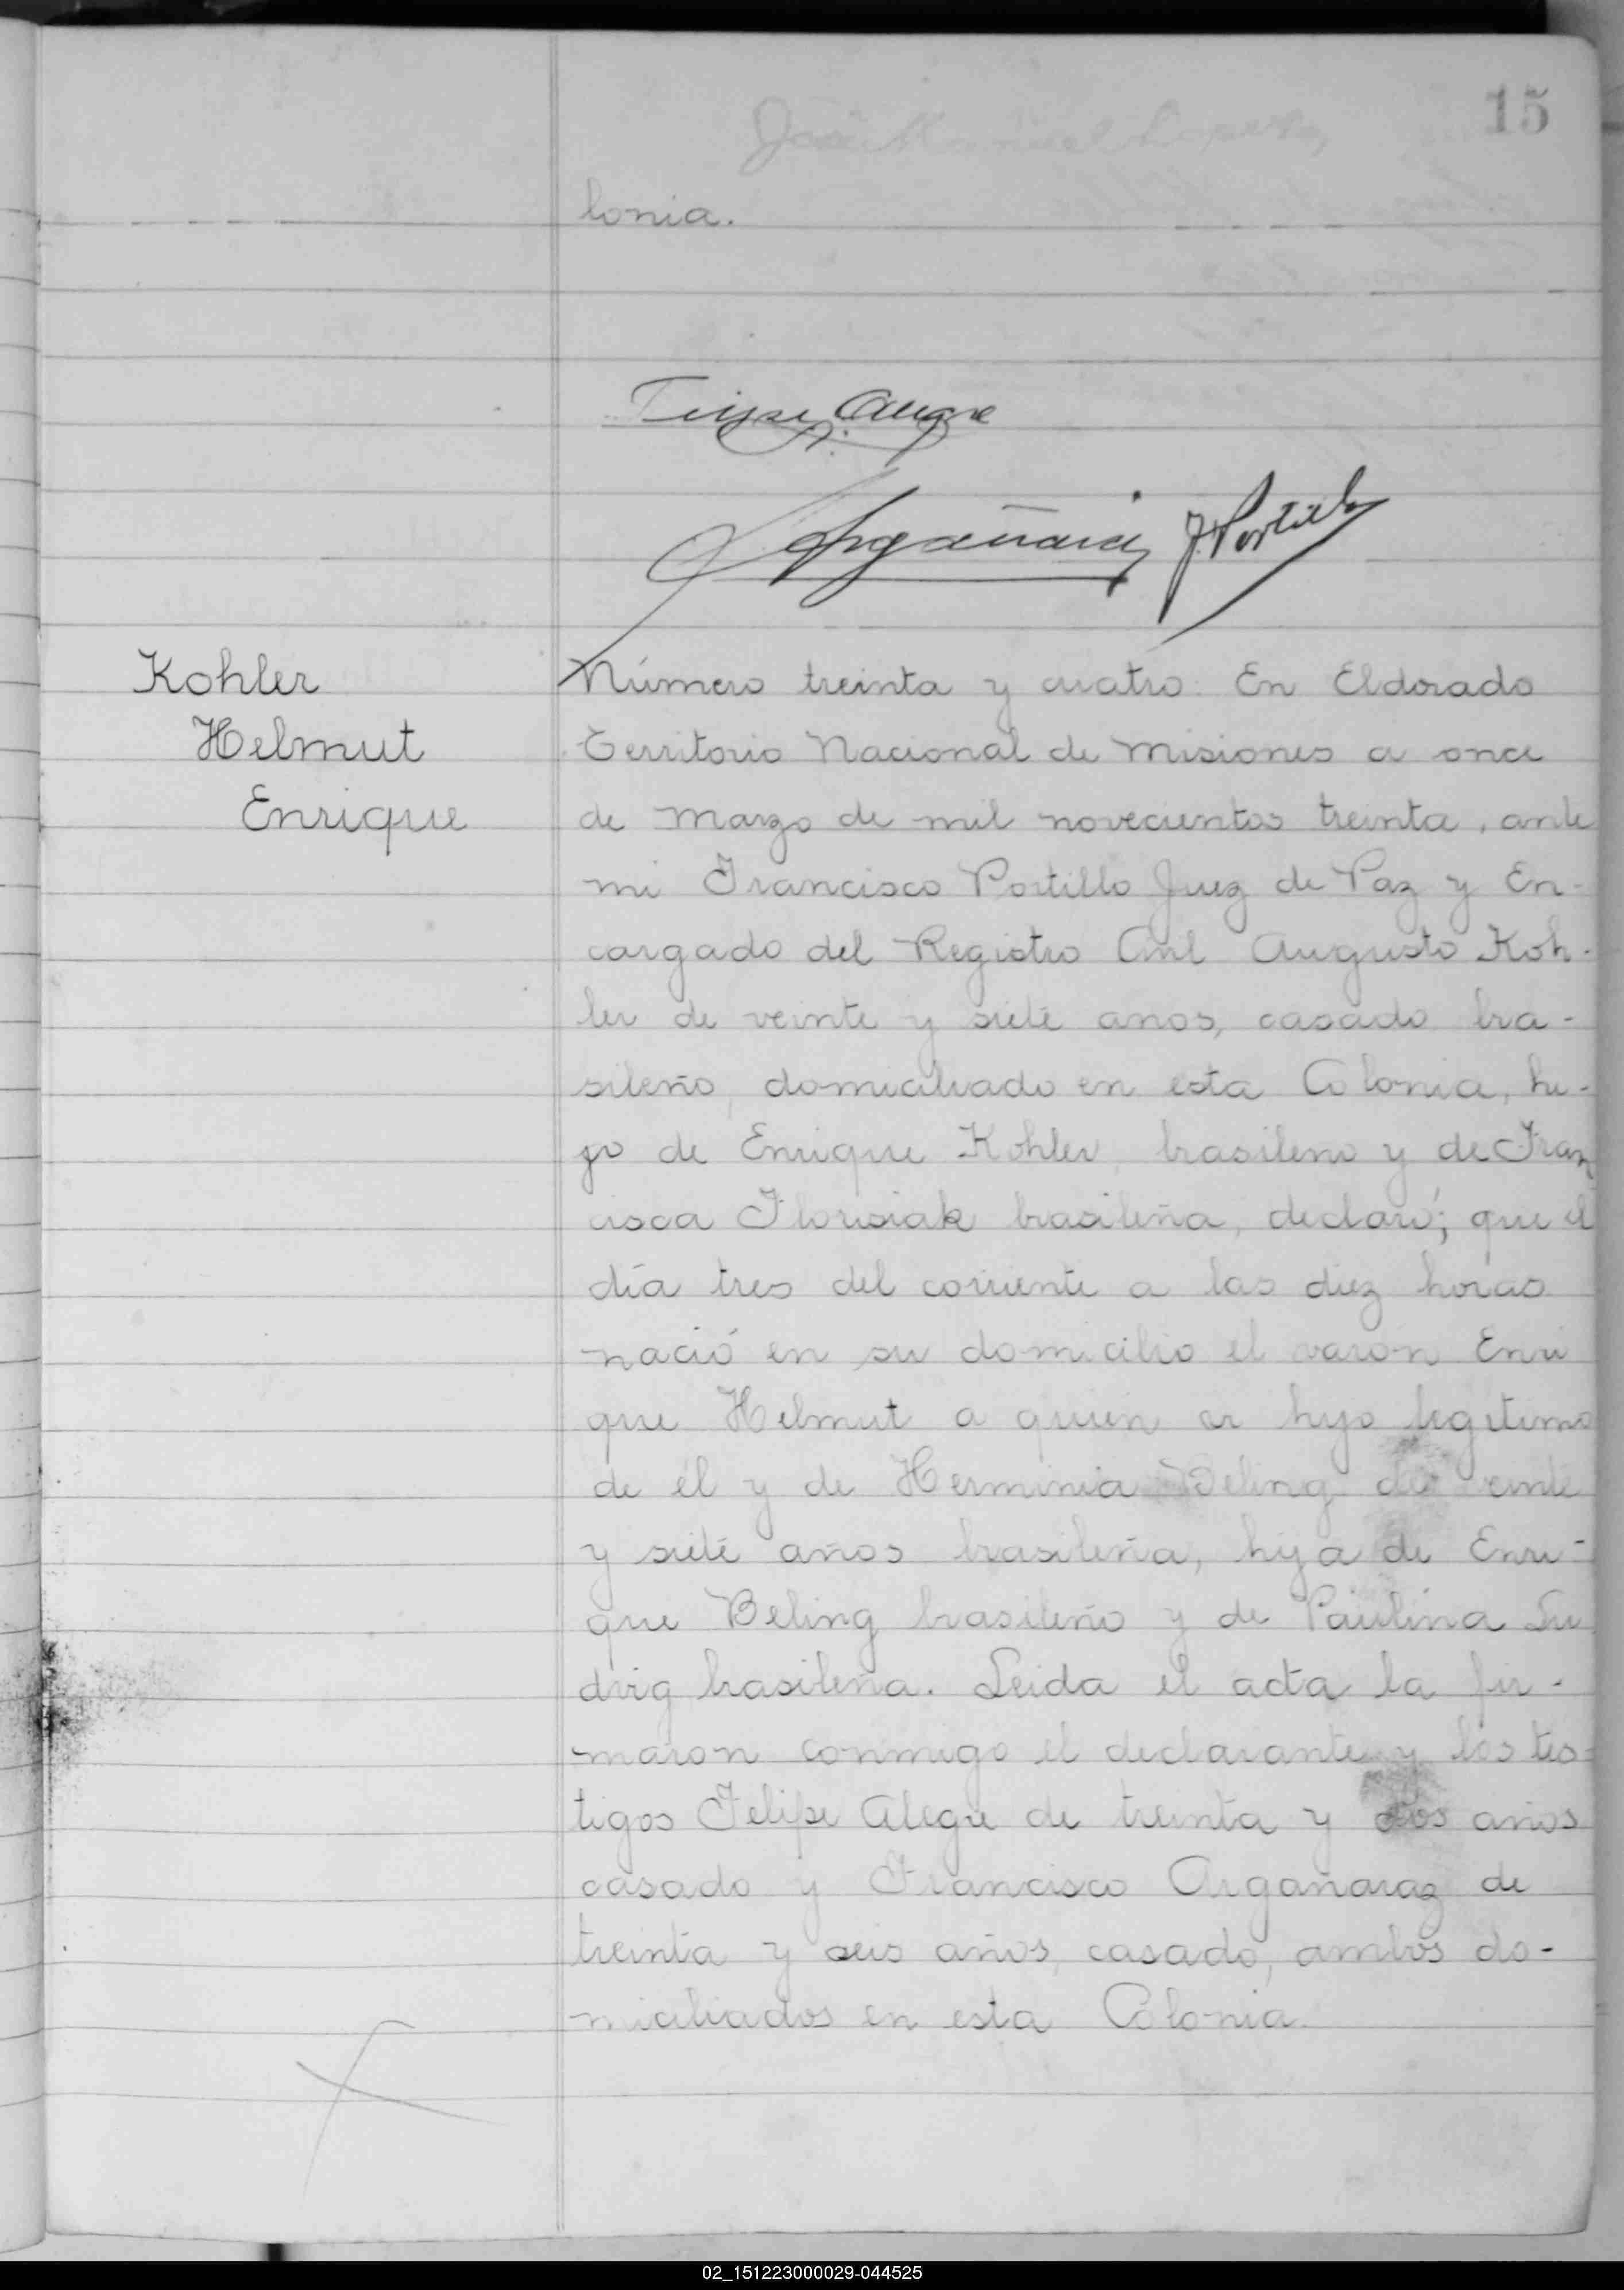 15
José Manuel Lopez
lonia.
Felipe Alegre
Argañaraz F. Portillo
Kohler
Helmut
Enrique
Número treinta y cuatro: En Eldorado
Territorio Nacional de Misiones a once
de Marzo de mil novecientos treinta, ante
mi Francisco Portillo Juez de Paz y En-
cargado del Registro Civil Augusto Koh-
ler de veinte y siete anos, casado bra-
sileño, domiciliado en esta Colonia, hi-
jo de Enrique Kohler brasileno y de Fran
cisca Florisiak brasileña, declaró; que el
día tres del corriente a las diez horas
nació en su domicilio el varon Enri
que Helmut a quien es hijo legitimo
de él y de Herminia Beling de veinte
y siete años brasileña, hija de Enri-
que Beling brasileño y de Paulina Lu
dvig brasileña. Leida el acta la fir-
maron conmigo el declarante y los tes-
tigos Felipe Alegre de treinta y dos años
casado y Francisco Argañaraz de
treinta y seis años, casado, ambos do-
miciliados en esta Colonia.
02_151223000029-044525